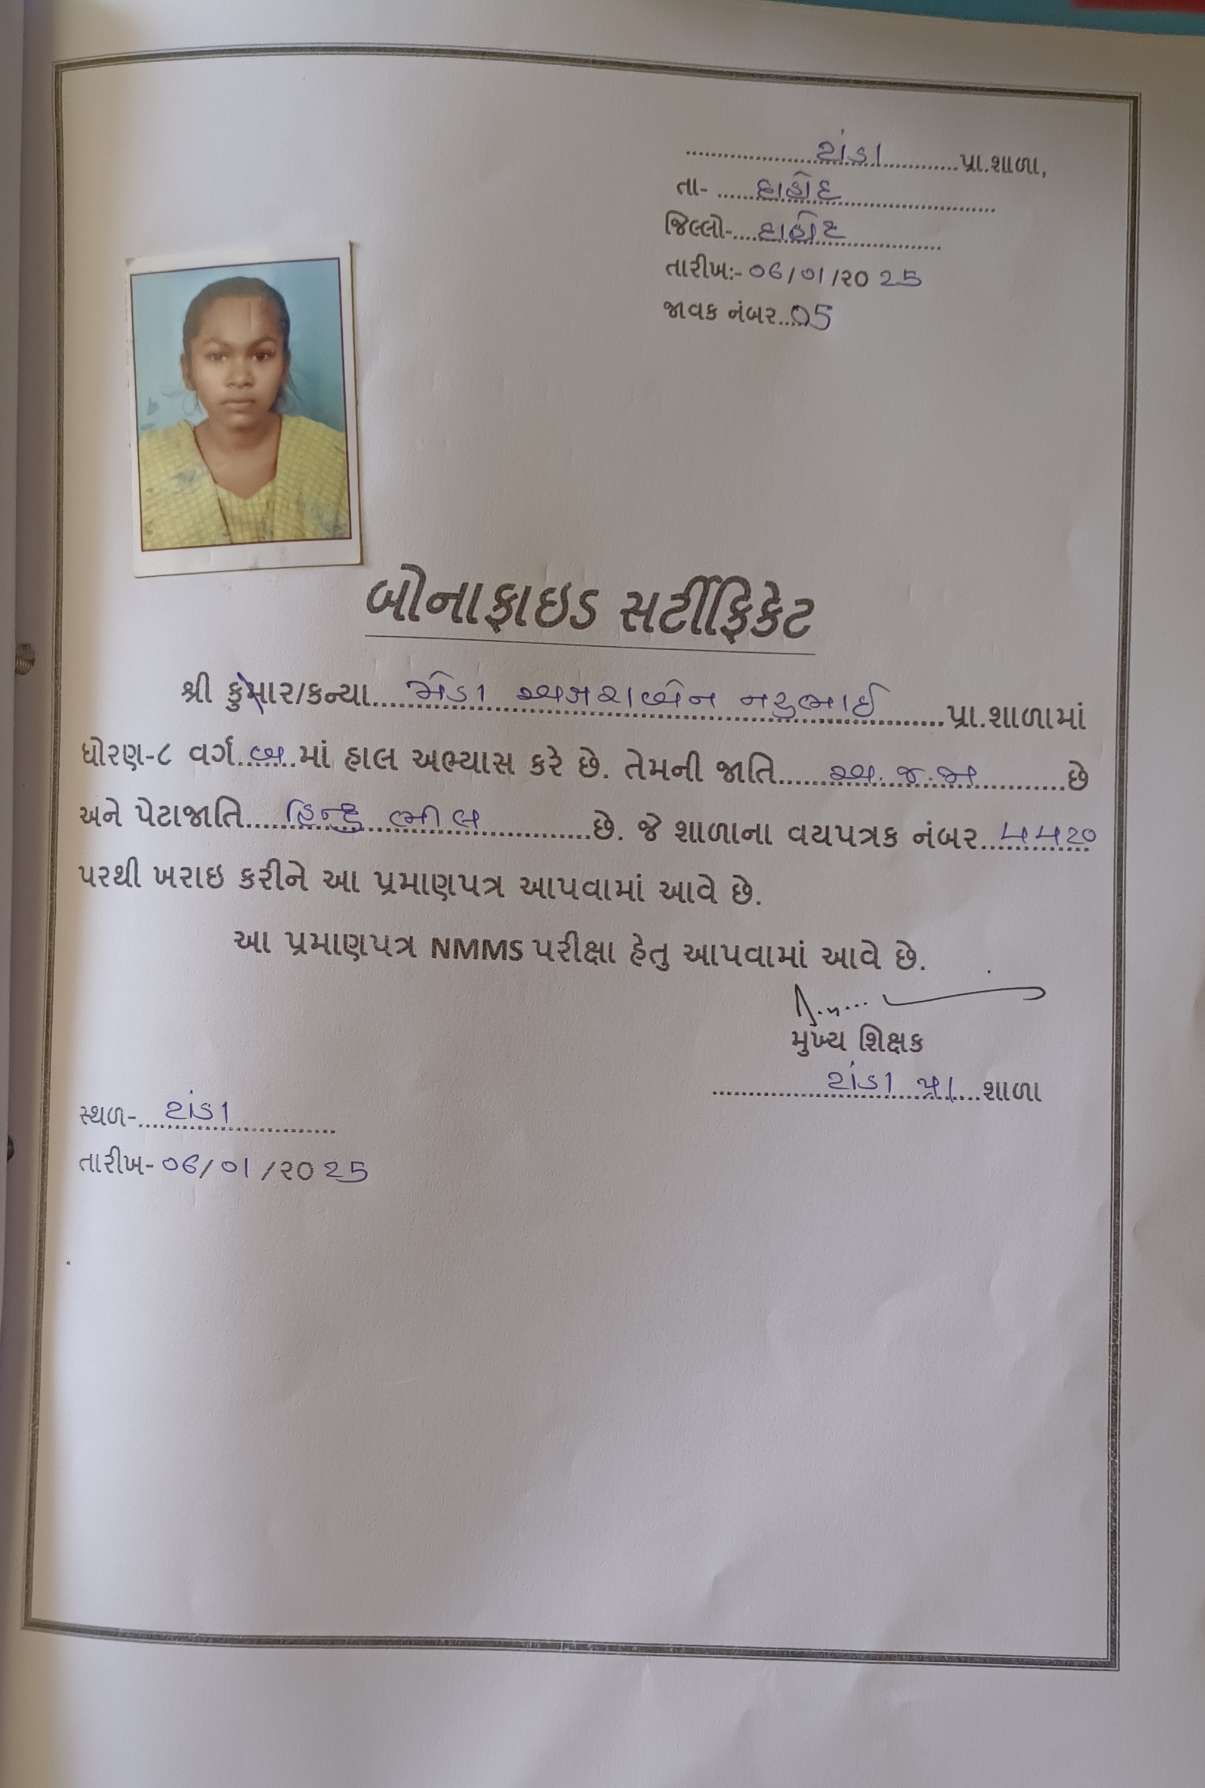 .....................રાંડા............પ્રા.શાળા,
તા- ......દાહોદ........................
જિલ્લો-....દાહોદ.................
તારીખઃ- ૦6/૦1/૨૦ 25
જાવક નંબર....05
બોનાફાઇડ સર્ટીફિકેટ
શ્રી કુમાર/કન્યા....મેડા નરુભાઈ..........પ્રા.શાળામાં
ધોરણ-૮ વર્ગ..બ..માં હાલ અભ્યાસ કરે છે. તેમની જાતિ.......અ.જ.જા............છે
અને પેટાજાતિ.....હિન્દુ ભીલ..............છે. જે શાળાના વયપત્રક નંબર..૫૫૨૦
પરથી ખરાઇ કરીને આ પ્રમાણપત્ર આપવામાં આવે છે.
આ પ્રમાણપત્ર NMMS પરીક્ષા હેતુ આપવામાં આવે છે.
મુખ્ય શિક્ષક
................રાંડા પ્રા....શાળા
સ્થળ-....રાંડા...............
તારીખ- ૦6/૦1/૨૦ 25